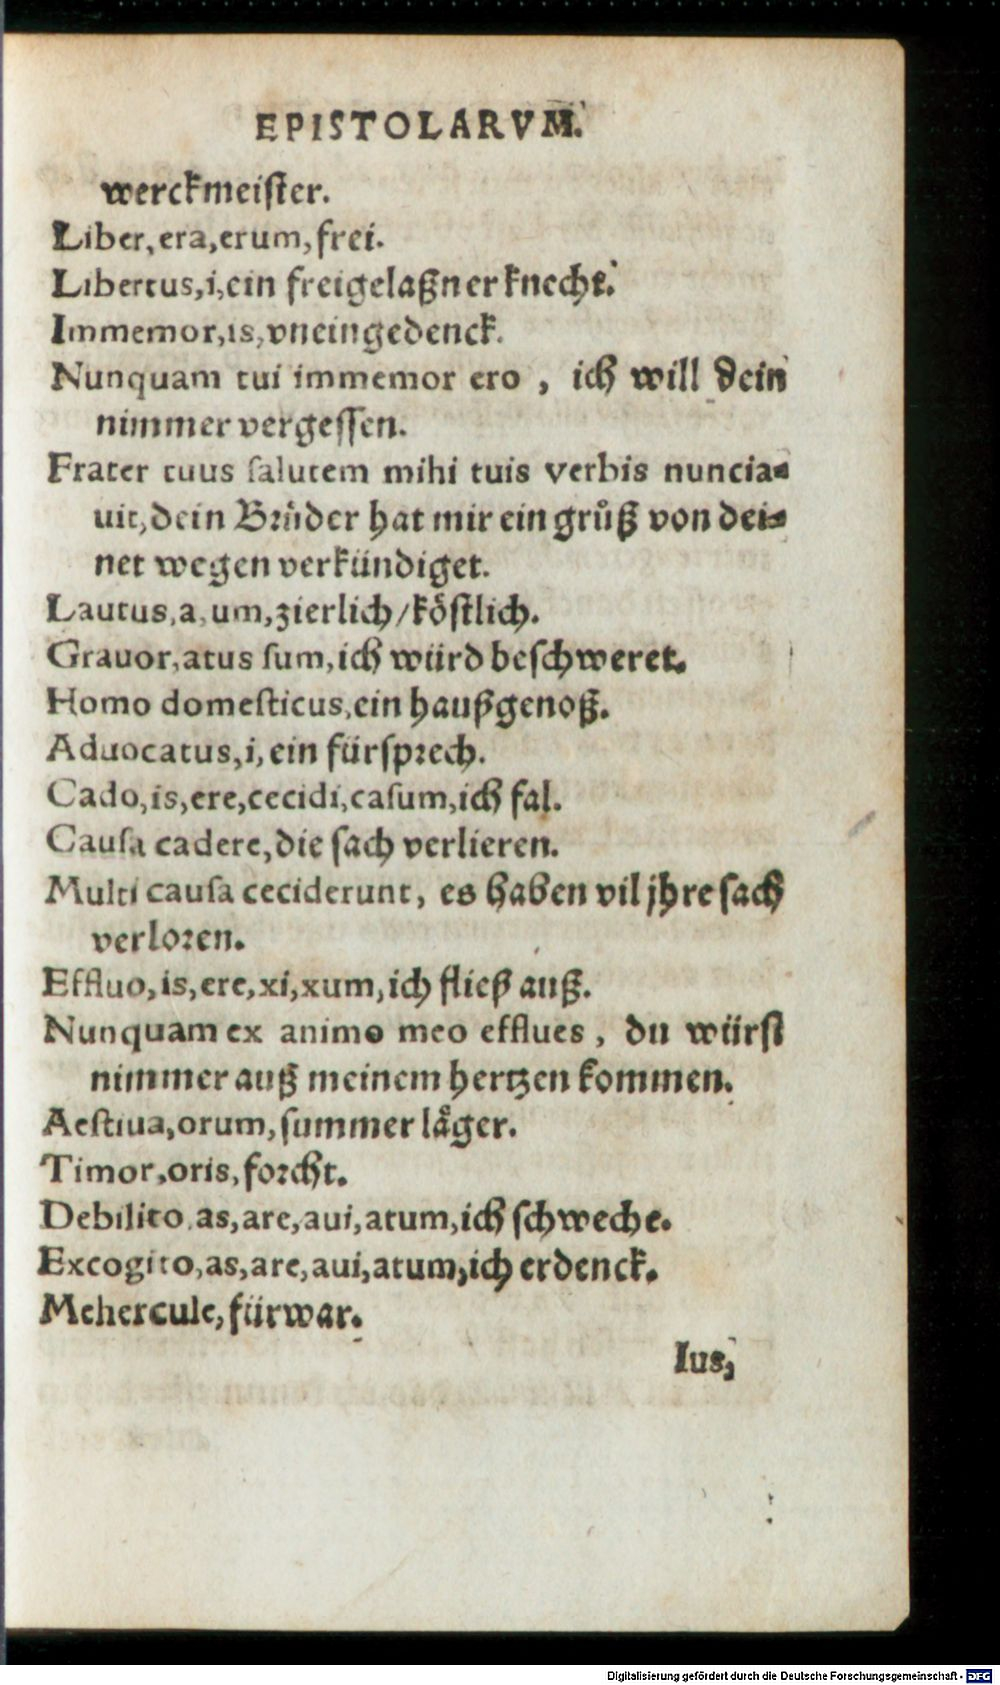 EPISTOLARVM.
werckmeister.
Liber, era, erum, frei.
Libertus, i, ein freigelaßner knecht.
Immemor, is, vneingedenck.
Nunquam tui immemor ero, ich will dein
nimmer vergessen.
Frater tuus salutem mihi tuis verbis nuncia-
uit, dein Brůder hat mir ein grůß von dei-
net wegen verkündiget.
Lautus, a, um, zierlich/köstlich.
Grauor, atus sum, ich würd beschweret.
Homo domesticus, ein haußgenoß.
Aduocatus, i, ein fürsprech.
Cado, is, ere, cecidi, casum, ich fal.
Causa cadere, die sach verlieren.
Multi causa ceciderunt, es haben vil jhre sach
verloren.
Effluo, is, ere, xi, xum, ich fließ auß.
Nunquam ex animo meo efflues, du würst
nimmer auß meinem hertzen kommen.
Aestiua, orum, summer läger.
Timor, oris, forcht.
Debilito, as, are, aui, atum, ich schweche.
Excogito, as, are, aui, atum, ich erdenck.
Mehercule, fürwar.
Ius,
Digitalisierung gefördert durch die Deutsche Forschungsgemeinschaft - DFG